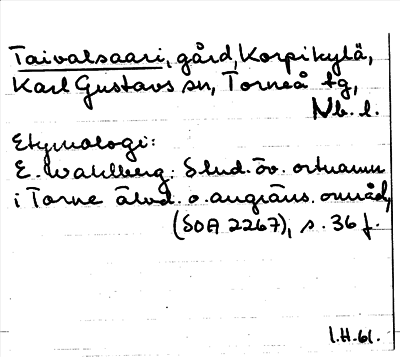 Taivalsaari, gård, Korpikylä,
Karl Gustavs sn, Torneå tg,
Nb. l.
Etymologi:
E. Wahlberg: Stud. öv. ortnamn
i Torne älvd. o. angräns. område,
(SOA 2267), s. 36 f.
1.H.61.